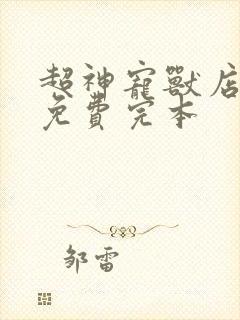 超神寵獸店
免費完本
邹雷